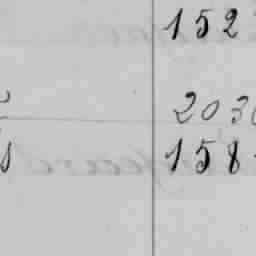 1 5 2
2 0 3
1 5 8